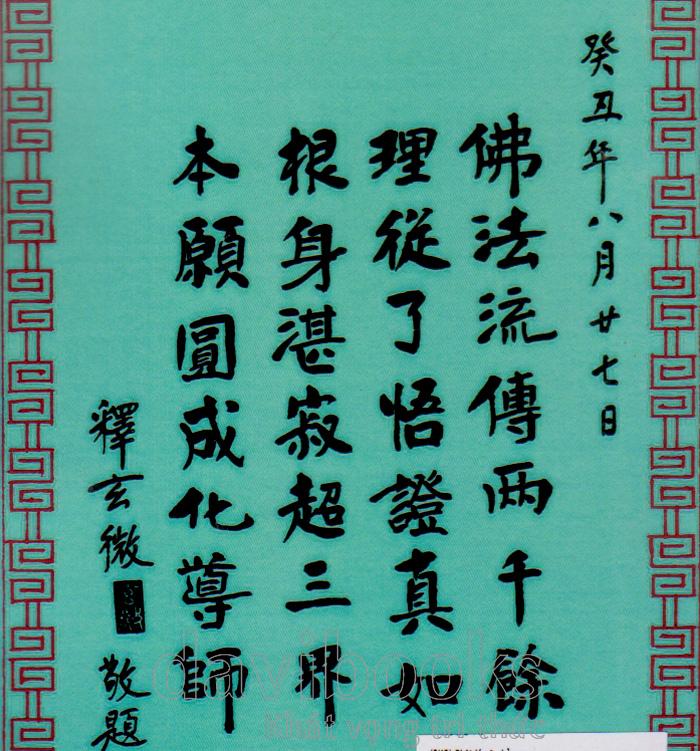 癸丑年八月廿七日
佛法流傳两千餘
理從了悟證真如
根身湛寂超三界
本願圓成化導師
釋玄微
敬題
davibooks
Khát vọng tri thức